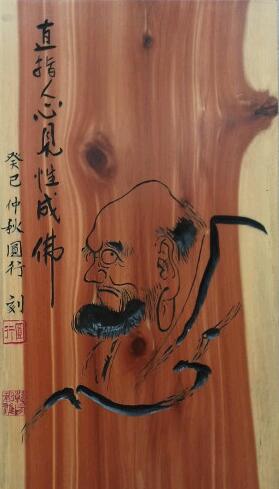 直指人心見性成佛
癸巳仲秋圓行刻
圓行